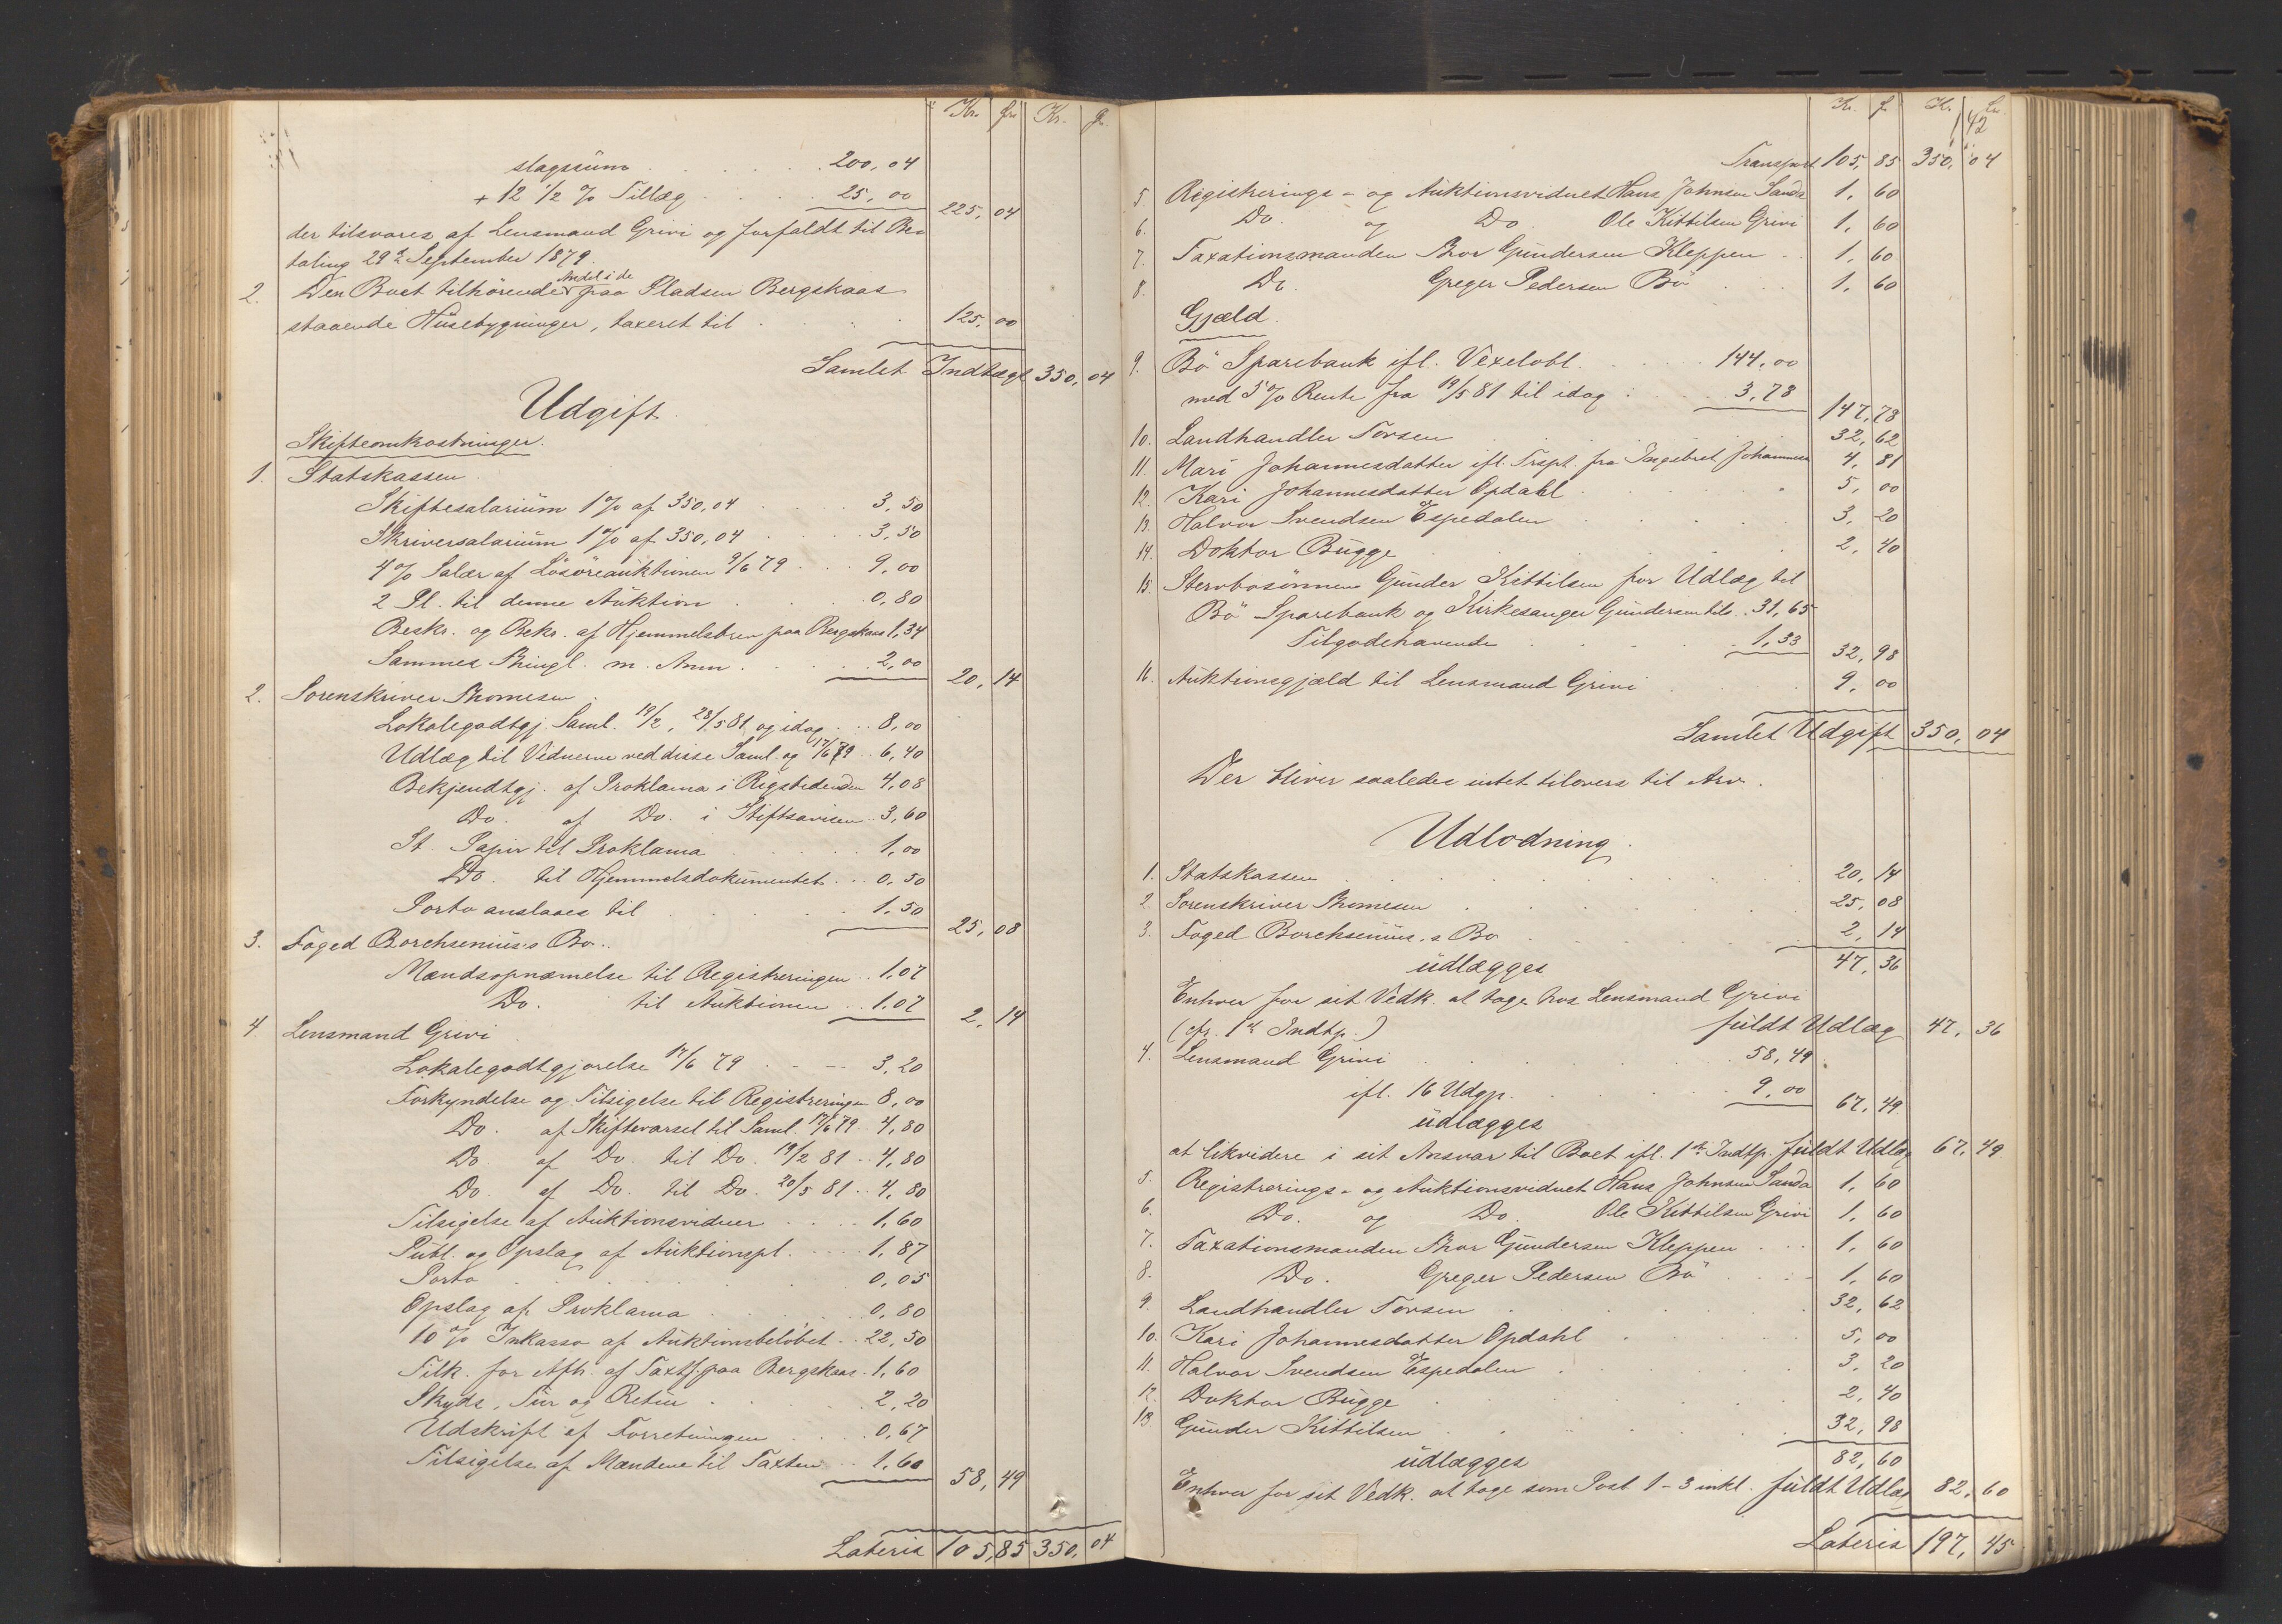 Kr. Ør. Kr. Ør.
slagssum 200,04
+ 12 1/2 % Tillæg 25,00 225,04
der tilsvares af Lensmand Grivi og forfaldt til Be=
taling 29de September 1879.
2. Den Boet tilhørende Andel i de paa Pladsen Bergskaas
staaende Husebygninger, taxeret til 125,00
Samlet Indtægt 350,04
Udgift.
Skifteomkostninger.
1. Statskassen
Skiftesalarium 1 % af 350,04 3,50
Skriversalarium 1 % af 350,04 3,50
4 % Salær af Løsøreauktionen 9/6 79 9,00
2 Pl. til denne Auktion 0,80
Beskr. og Bekr. af Hjemmelsbrev paa Bergskaas 1,34
Sammes Thingl. m. Anm. 2,00 20,14
2. Sorenskriver Thomesen
Lokalegodtgj. Saml. 19/2, 28/5 81 og idag 8,00
Udlæg til Vidnerne ved disse Saml. og 17/6 79 6,40
Bekjendtgj. af Proklama i Rigstidenden 4,08
Do. af Do. i Stiftsavisen 3,60
St. Papir til Proklama 1,00
Do. til Hjemmelsdokumentet 0,50
Porto anslaaes til 1,50 25,08
3. Foged Borchsenius's Bo.
Mændsopnævnelse til Registreringen 1,07
Do. til Auktionen 1,07 2,14
4. Lensmand Grivi
Lokalegodtgjørelse 17/6 79 3,20
Forkyndelse og Tilsigelse til Registreringen 8,00
Do. af Skiftevarsel til Saml. 17/6 79 4,80
Do af Do. til Do. 19/2 81 4,80
Do. af Do. til Do. 20/5 81 4,80
Tilsigelse af Auktionsvidner 1,60
Publ. og Opslag af Auktionspl. 1,87
Porto 0,05
Opslag af Proklama 0,80
10 % Inkasso af Auktionsbeløbet 22,50
Tilk. for Afh. af Taxtf. paa Bergskaas 1,60
Skyds, Tur og Retur 2,20
Udskrift af Forretningen 0,67
Tilsigelse af Mændene til Taxten 1,60 58,49
Lateris 105,85 350,04
142
Kr. Ør. Kr. Ør.
Transport 105,85 350,04
5. Registrerings- og Auktionsvidnet Hans Johnsen Sanda 1,60
6. Do og Do Ole Kittilsen Grivi 1,60
7. Taxationsmanden Thor Gundersen Kleppen 1,60
8. Do. Greger Pedersen Bø 1,60
Gjæld.
9. Bø Sparebank ifl. Vexelobl. 144,00
med 5 % Rente fra 19/5 81 til idag 3,78 147,78
10. Landhandler Forsen 32,62
11. Mari Johannesdatter ifl. Trspt. fra Ingebret Johannesen 4,81
12. Kari Johannesdatter Opdahl 5,00
13. Halvor Svendsen Espedalen 3,20
14. Doktor Bugge 2,40
15. Stervbosønnen Gunder Kittilsen for Udlæg til
Bø Sparebank og Kirkesanger Gundersen tils. 31,65
Tilgodehavende 1,33 32,98
16. Auktionsgjæld til Lensmand Grivi 9,00
Samlet Udgift 350,04
Der bliver saaledes intet tilovers til Arv.
Udlodning.
1. Statskassen 20,14
2. Sorenskriver Thomesen 25,08
3. Foged Borchsenius's Bo 2,14
udlægges 47,36
Enhver for sit Vedk. at tage hos Lensmand Grivi
(cfr. 1ste Indtp.) fuldt Udlæg 47,36
4. Lensmand Grivi 58,49
ifl. 16 Udgp. 9,00 67,49
udlægges
at likvidere i sit Ansvar til Boet ifl. 1ste Indtp. fuldt Udlæg 67,49
5. Registrerings- og Auktionsvidnet Hans Johnsen Sanda 1,60
6. Do. og Do. Ole Kittilsen Grivi 1,60
7. Taxationsmanden Thor Gundersen Kleppen 1,60
8. Do. Greger Pedersen Bø 1,60
9. Landhandler Forsen 32,62
10. Kari Johannesdatter Opdahl 5,00
11. Halvor Svendsen Espedalen 3,20
12. Doktor Bugge 2,40
13. Gunder Kittilsen 32,98
udlægges 82,60
Enhver for sit Vedk. at tage som Post 1-3 inkl. fuldt Udlæg 82,60
Lateris 197,45